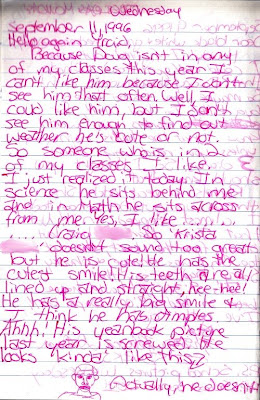 Wednesday
September 11, 1996
Hello again friend,
Because Doug isn't in any
of my classes this year I
can't like him because I won't
see him that often. Well, I
could like him, but I don't
see him enough to find out
weather he's cute or not.
So someone who is in 2
of my classes I like.
I just realized it today. In
science he sits behind me
and in Math he sits across
from me. Yes, I like.......
....Craig So Krista
doesn't sound too great
but he is cute! He has the
cutest smile! His teeth are all
lined up and straight, hee-hee!
He has a really big smile &
I think he has dimples
Ahhh! His yearbook picture
last year is screwed. He
looks 'kinda' like this
Actually, he doesn't